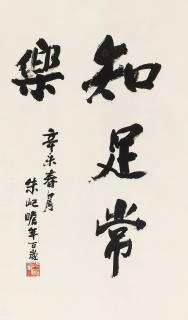 知足常
樂
辛未春月
朱屺瞻年百歲